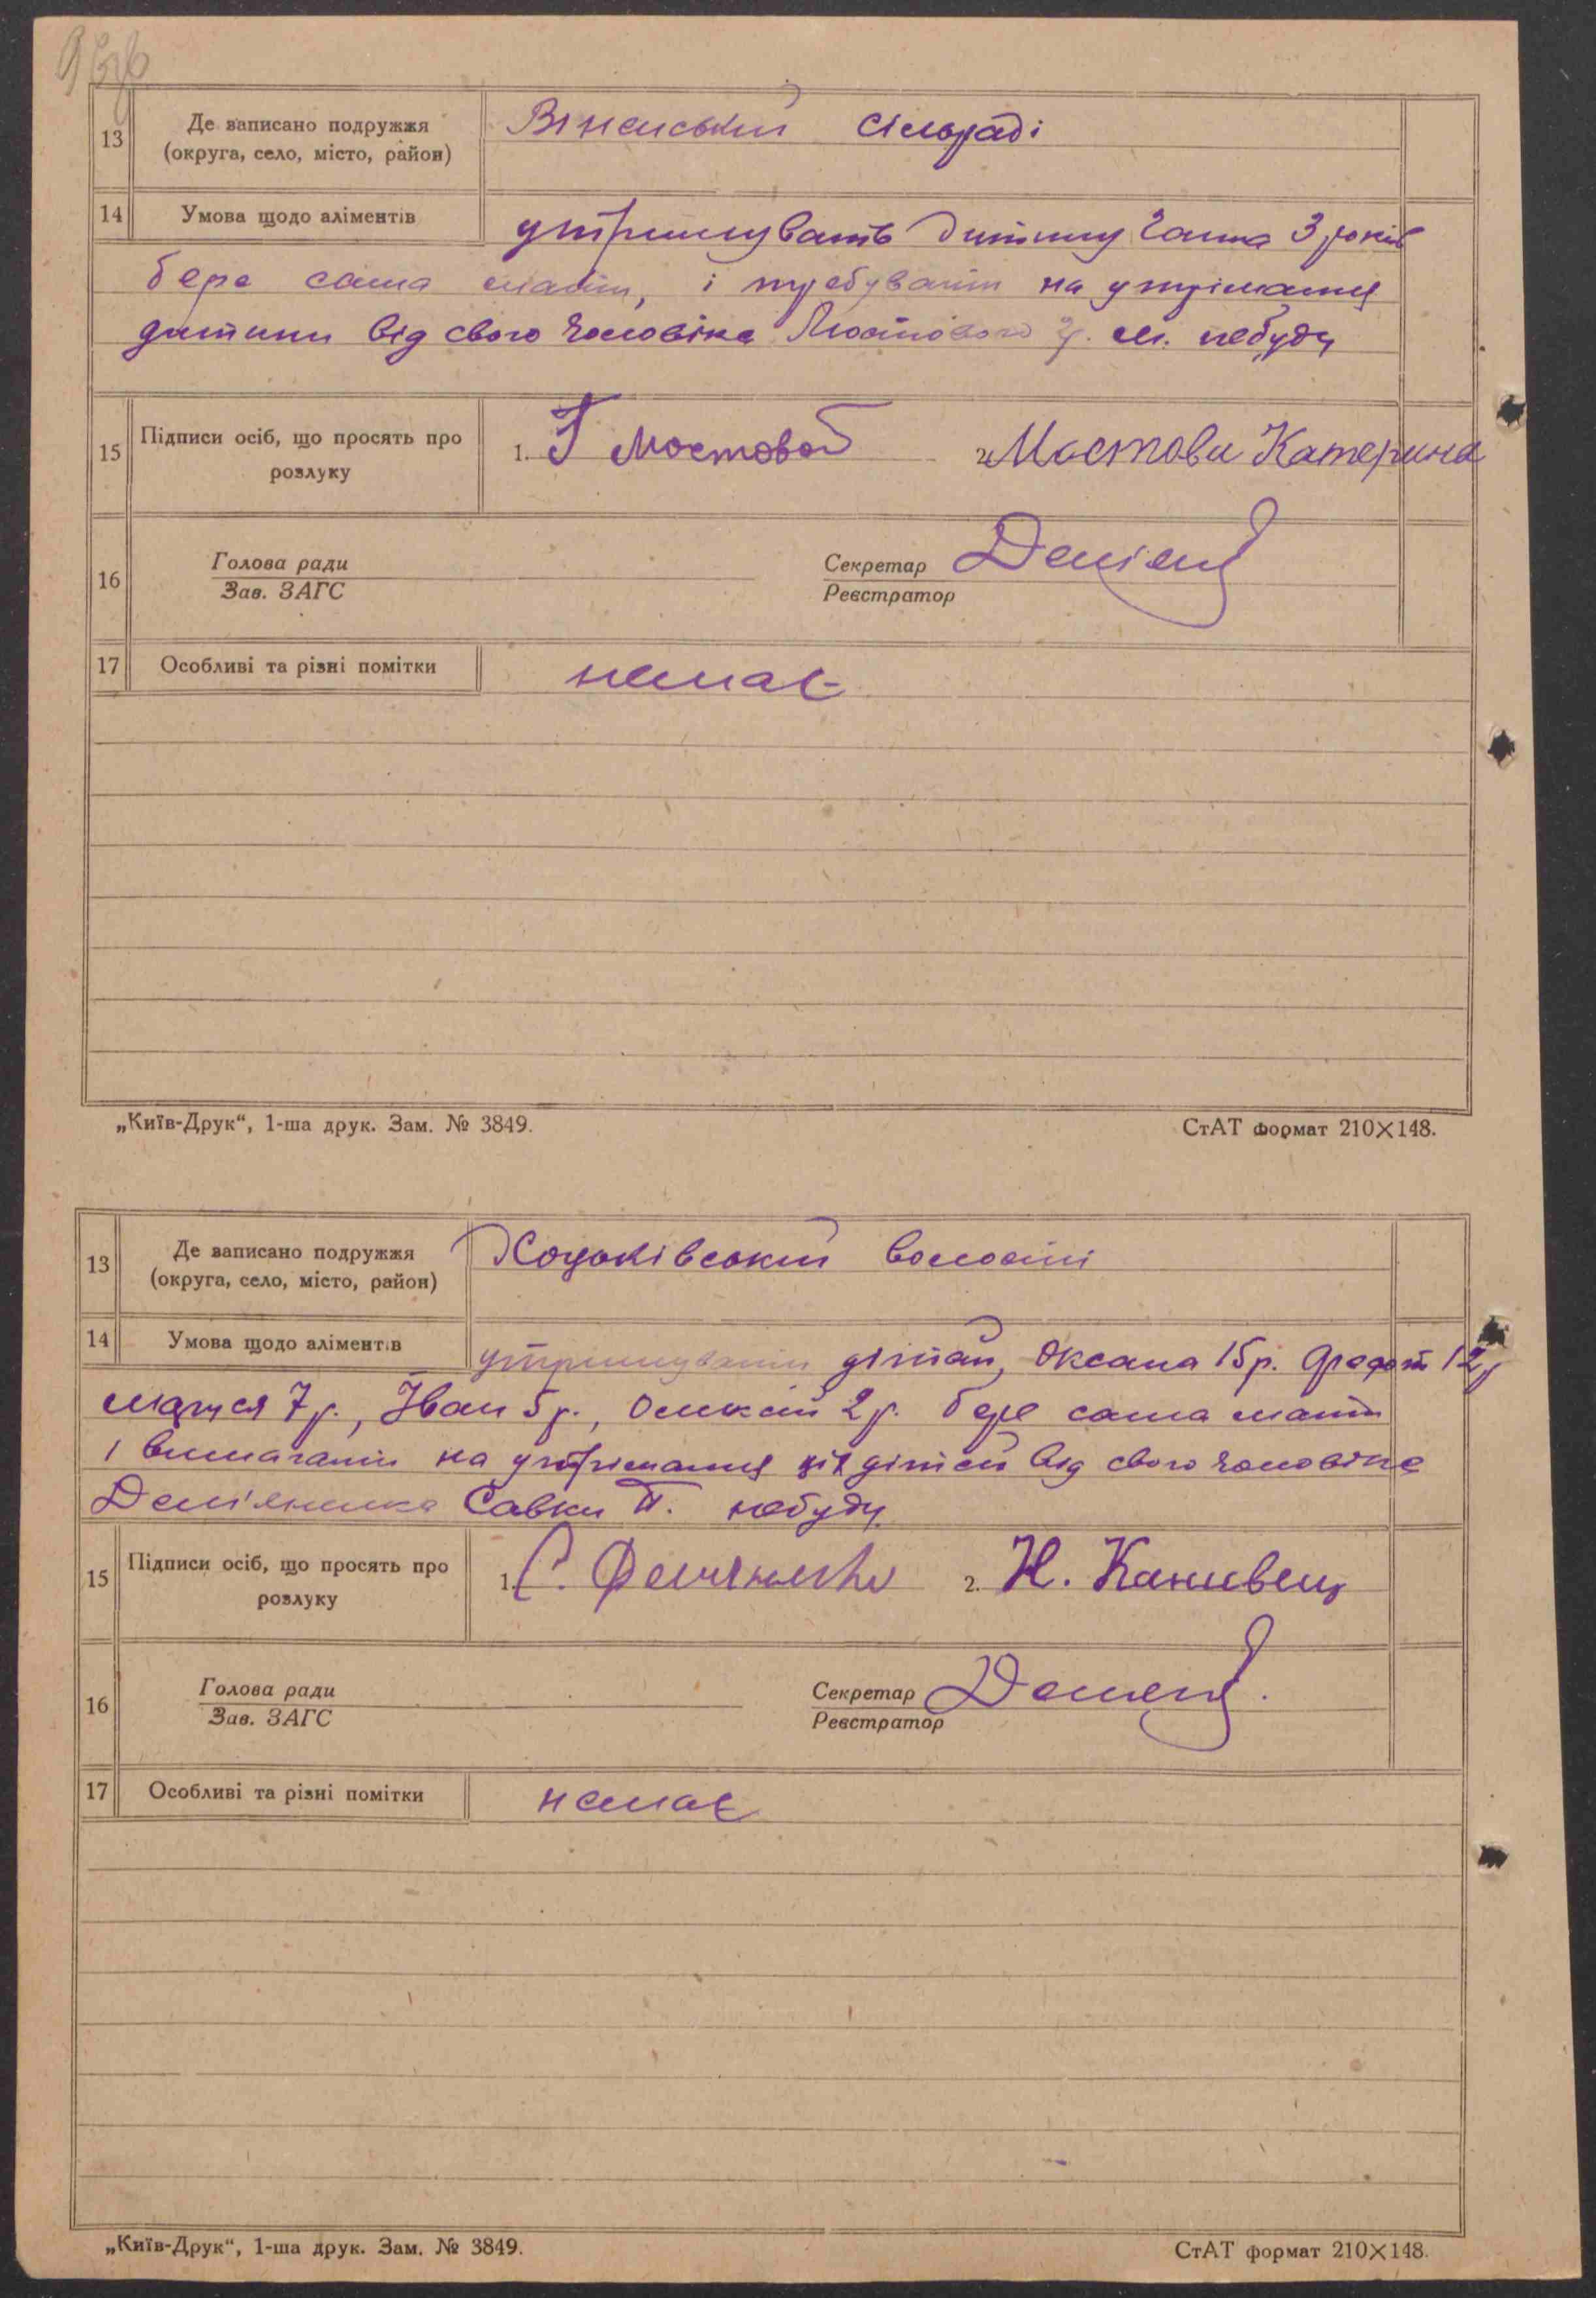 13
Де записано подружжя
(округа, село, місто, район)
сільраді
14
Умова щодо аліментів
утримувать дитину Галина 3 років
бере сама мати, і требувати на утрімання
дитини від свого чоловіка Мостового г. м. небуду
15
Підписи осіб, що просять про
розлуку
1. Г Мостовой
2. Мостова Катерина
16
Голова ради
Зав. ЗАГС
Секретар
Реєстратор
17
Особливі та різні помітки
немає
„Київ-Друк“, 1-ша друк. Зам. № 3849.
СтАТ формат 210×148.
13
Де записано подружжя
(округа, село, місто, район)
Хоцьківський волості
14
Умова щодо аліментів
утримувати дітей, Оксана 15 р. 12 р
маруся 7 р., Іван 5 р., Оликсій 2 р. бере сама мати
і вимагати на утрімання ціх дітей від свого чоловіка
Демʼяненка Савки П. небуду
15
Підписи осіб, що просять про
розлуку
1. С.
2. Н. Канивець
16
Голова ради
Зав. ЗАГС
Секретар
Реєстратор
17
Особливі та різні помітки
немає
„Київ-Друк“, 1-ша друк. Зам. № 3849.
СтАТ формат 210×148.